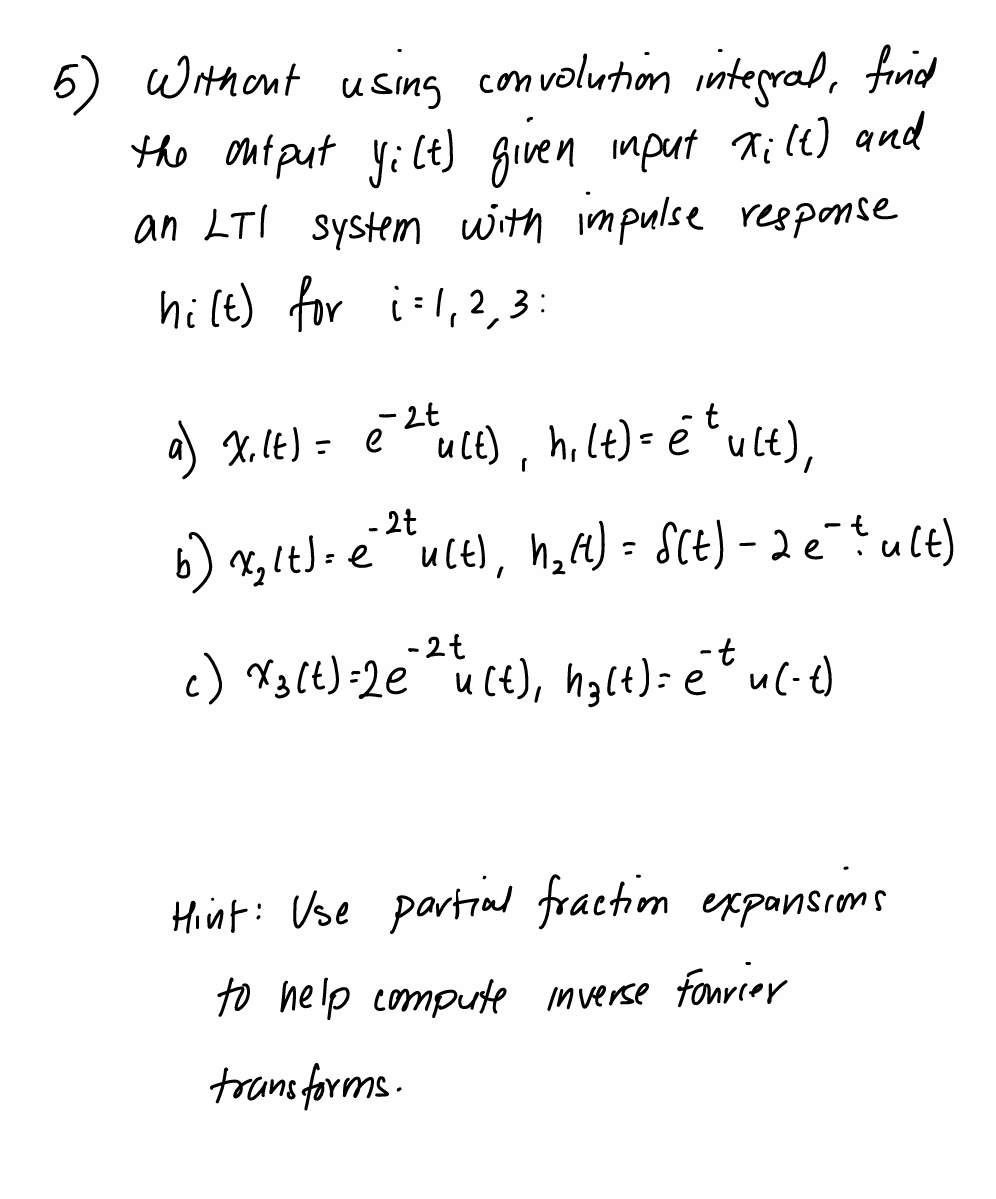 5) Without using convolution integral, find
the output yᵢ(t) given input xᵢ(t) and
an LTI system with impulse response
hᵢ(t) for i = 1, 2, 3:
a) x₁(t) = e^{-2t} u(t), h₁(t) = e^{-t} u(t),
b) x₂(t) = e^{-2t} u(t), h₂(t) = δ(t) - 2e^{-t} u(t)
c) x₃(t) = 2e^{-2t} u(t), h₃(t) = e^{-t} u(-t)
Hint: Use partial fraction expansions
to help compute inverse Fourier
transforms.